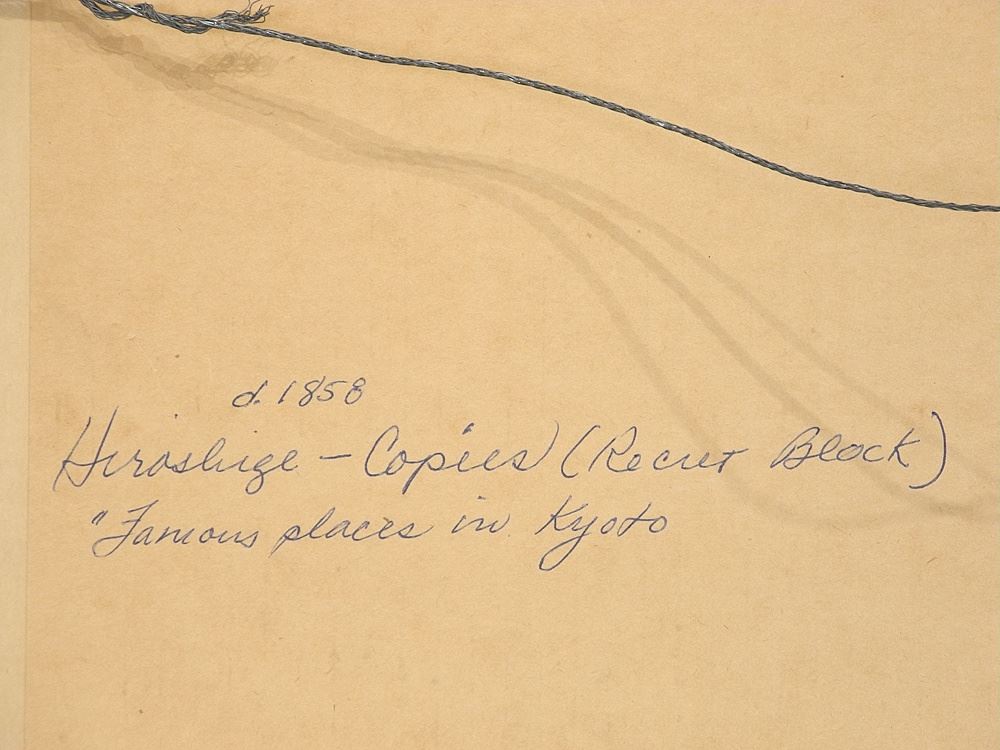 d. 1858
Hiroshige - Copies (Recut Block)
"Famous places in Kyoto